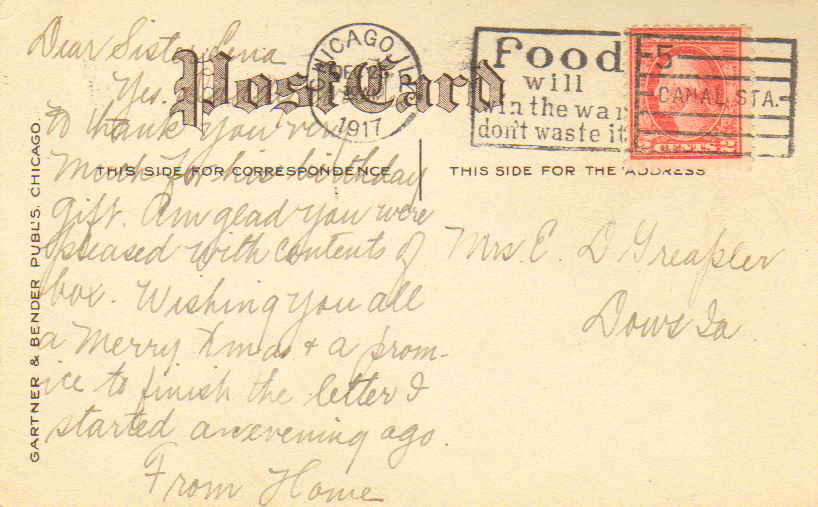 Dear Sister Lena
Yes.
to thank you very
much for his birthday
gift. Am glad you were
pleased with contents of
box. Wishing you all
a Merry Xmas & a prom-
ice to finish the letter I
started an evening ago.
From Home
Post Card
THIS SIDE FOR CORRESPONDENCE
THIS SIDE FOR THE ADDRESS
GARTNER & BENDER PUBL'S. CHICAGO.
CHICAGO, ILL.
DEC 23
1917
Food
will
win the war
don't waste it
5
CANAL STA.
2 CENTS 2
Mrs. E. D.
Dows Ia